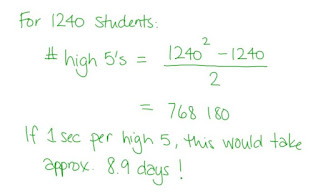 For 1240 students:
# high 5's = 1240² - 1240 / 2
= 768 180
If 1 sec per high 5, this would take
approx. 8.9 days!